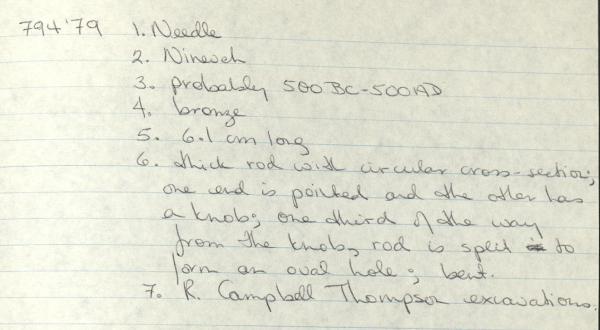 794'79 1. Needle
2. Nineveh
3. probably 500 BC-500AD
4. bronze
5. 6.1 cm long
6. thick rod with circular cross-section;
one end is pointed and the other has
a knob; one third of the way
from the knob, rod is split to
form an oval hole; bent.
7. R. Campbell Thompson excavations.